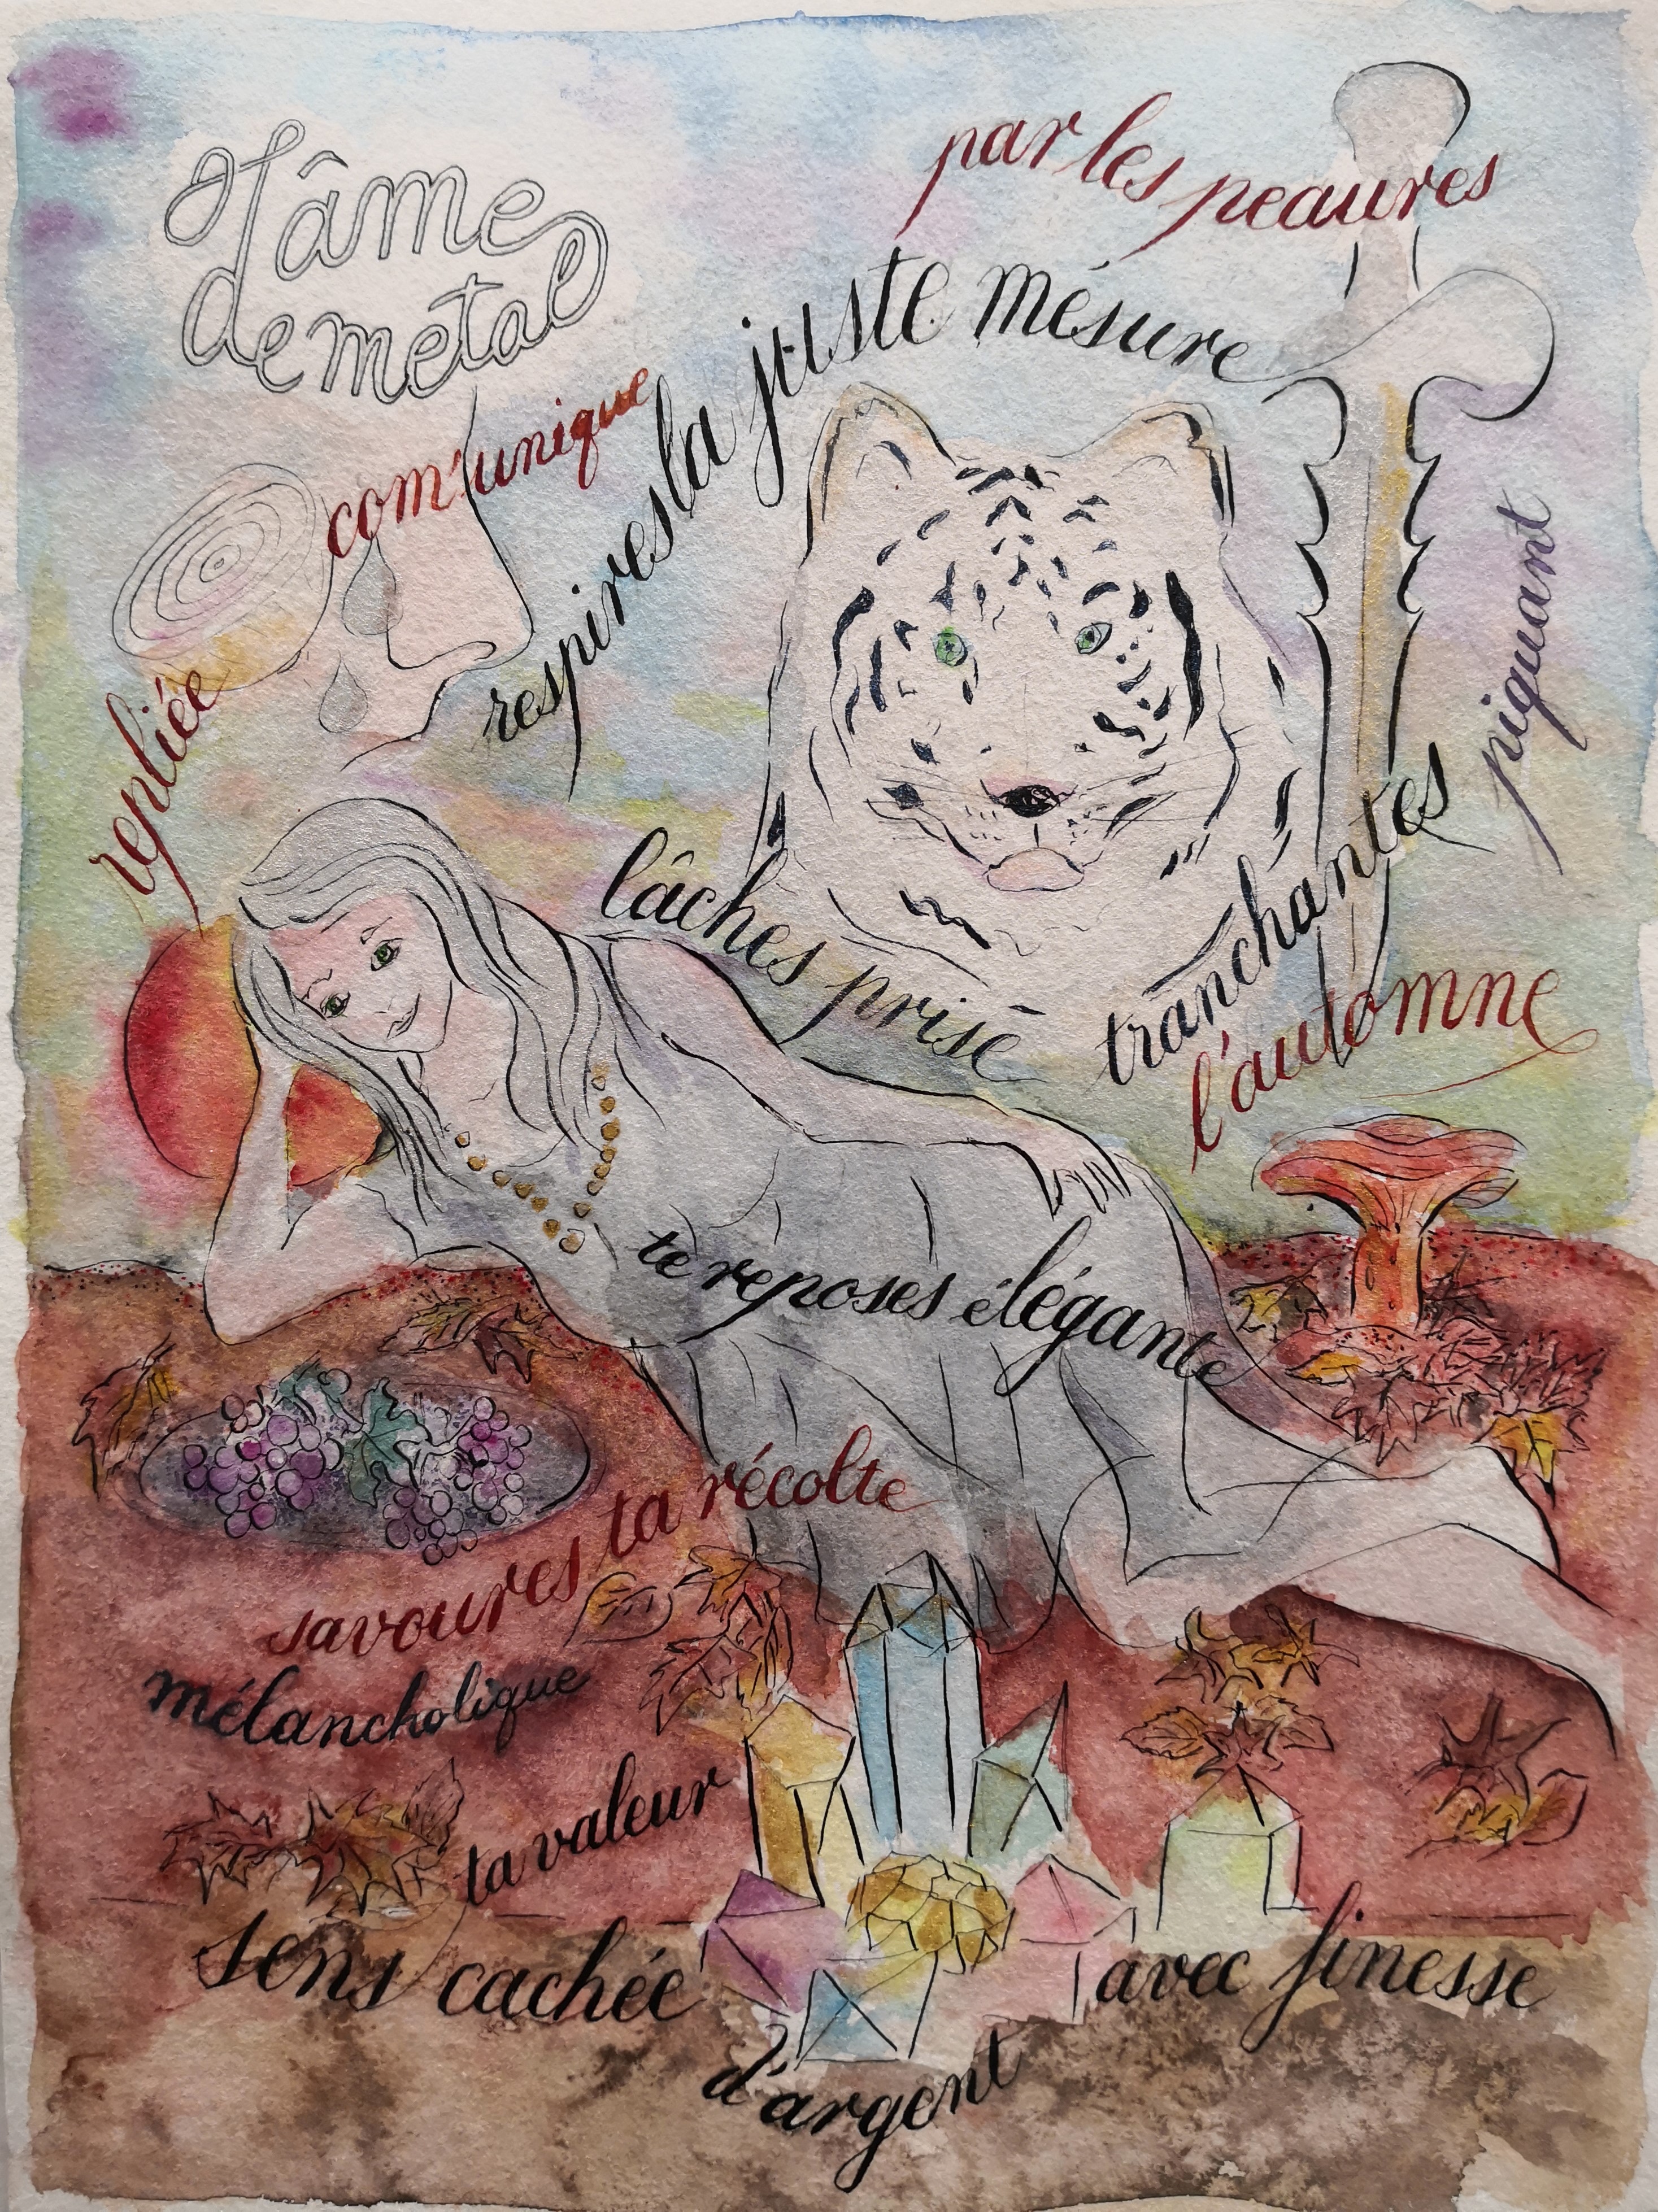 Ô l'âme
de métal
par les peaures
com'unique
respires la juste mésure
piquant
repliée
lâches prise
tranchantes
l'automne
te reposes élégante
savoures ta récolte
mélancholique
ta valeur
sens cachée
avec finesse
d'argent